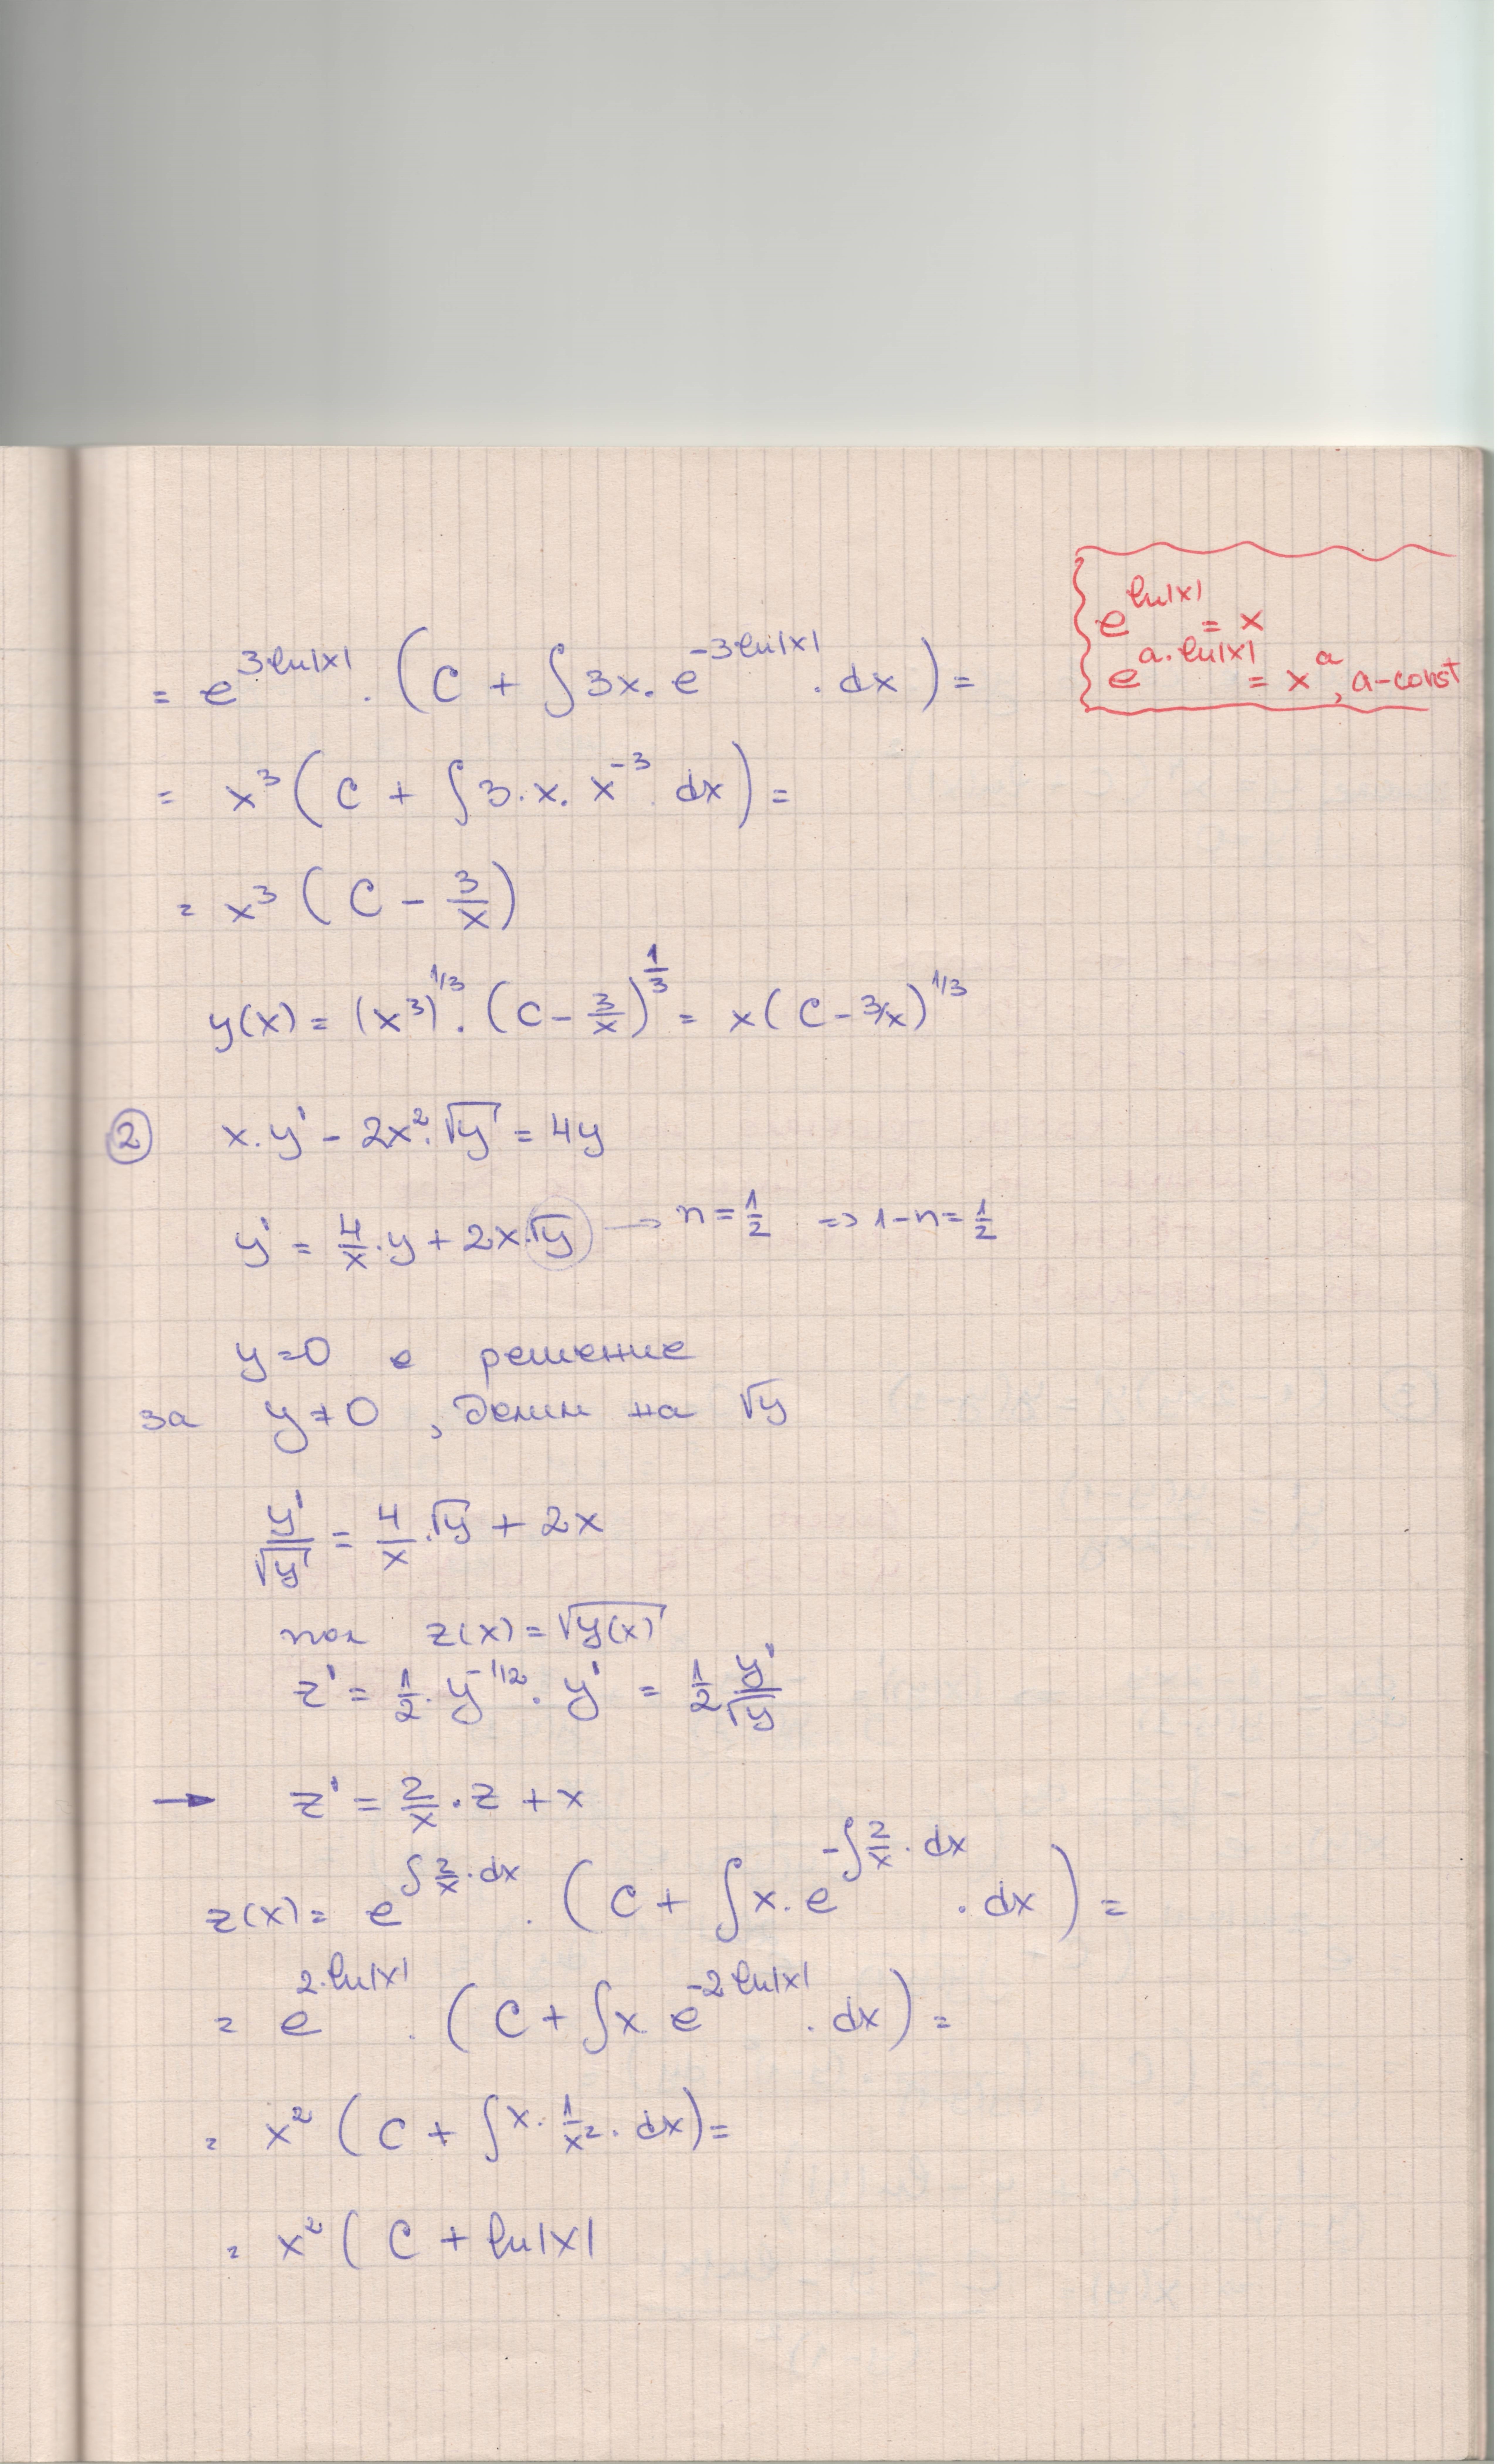 e^{ln|x|} = x
e^{a.ln|x|} = x^a, a-const
= e^{3.ln|x|} . (C + ∫3x. e^{-3ln|x|} . dx) =
= x³(C + ∫3.x. x^{-3} dx) =
= x³ (C - 3/x)
y(x) = (x³)^{1/3} . (C - 3/x)^{1/3} = x(C - 3/x)^{1/3}
② x.y' - 2x².√y = 4y
y' = 4/x.y + 2x.√y → n = 1/2 => 1-n = 1/2
y=0 е решение
за y≠0, делим на √y
y'/√y = 4/x.√y + 2x
пол z(x) = √y(x)
z' = 1/2.y^{-1/2}.y' = 1/2 y'/√y
→ z' = 2/x.z + x
z(x) = e^{∫2/x.dx} . (C + ∫x.e^{-∫2/x.dx} . dx) =
= e^{2.ln|x|} . (C + ∫x e^{-2ln|x|} . dx) =
= x² (C + ∫x. 1/x². dx) =
= x² (C + ln|x|